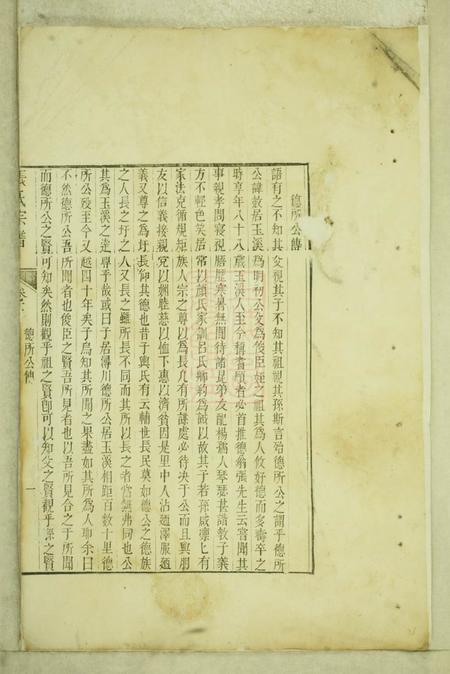 德所公傳
語有之不知其父視其子不知其祖視其孫斯言殆德所公之謂乎德所
公諱 居玉溪為明初公文為後臣 之祖其為人攸好德而多壽卒之
時享年八十八歲玉溪人至今稱耆 者必首推德翁張先生云嘗聞其
事親孝問寢視膳歷寒暑無間待諸昆弟友配楊孺人琴瑟甚諧教子義
方不輕色笑居常以顏氏家訓呂氏鄉約為誡以故其子若孫咸凜凜有
家法克循規矩族人宗之尊以為長凡有所謀處必待決于公而且與朋
友以信義接親 以 睦慈以恤下惠以濟貧因是里中人沾 澤服 
義又尊之為圩長仰其德也昔于輿氏有云輔世長民莫如德公之德族
之人長之圩之人又長之雖所長不同而其所以長之者當無弗同也公
其為玉溪之達尊乎哉或曰子居潯川德所公居玉溪相距百數十里德
所公歿至今又越四十年矣子烏知其所聞之果盡如其所為人耶余曰
不然德所公吾所聞者也後臣之賢吾所見者也以吾所見合之于所聞
而德所公之賢可知矣然則觀乎祖之賢即可以知父之賢觀乎孫之賢
張氏宗譜
德所公傳
一